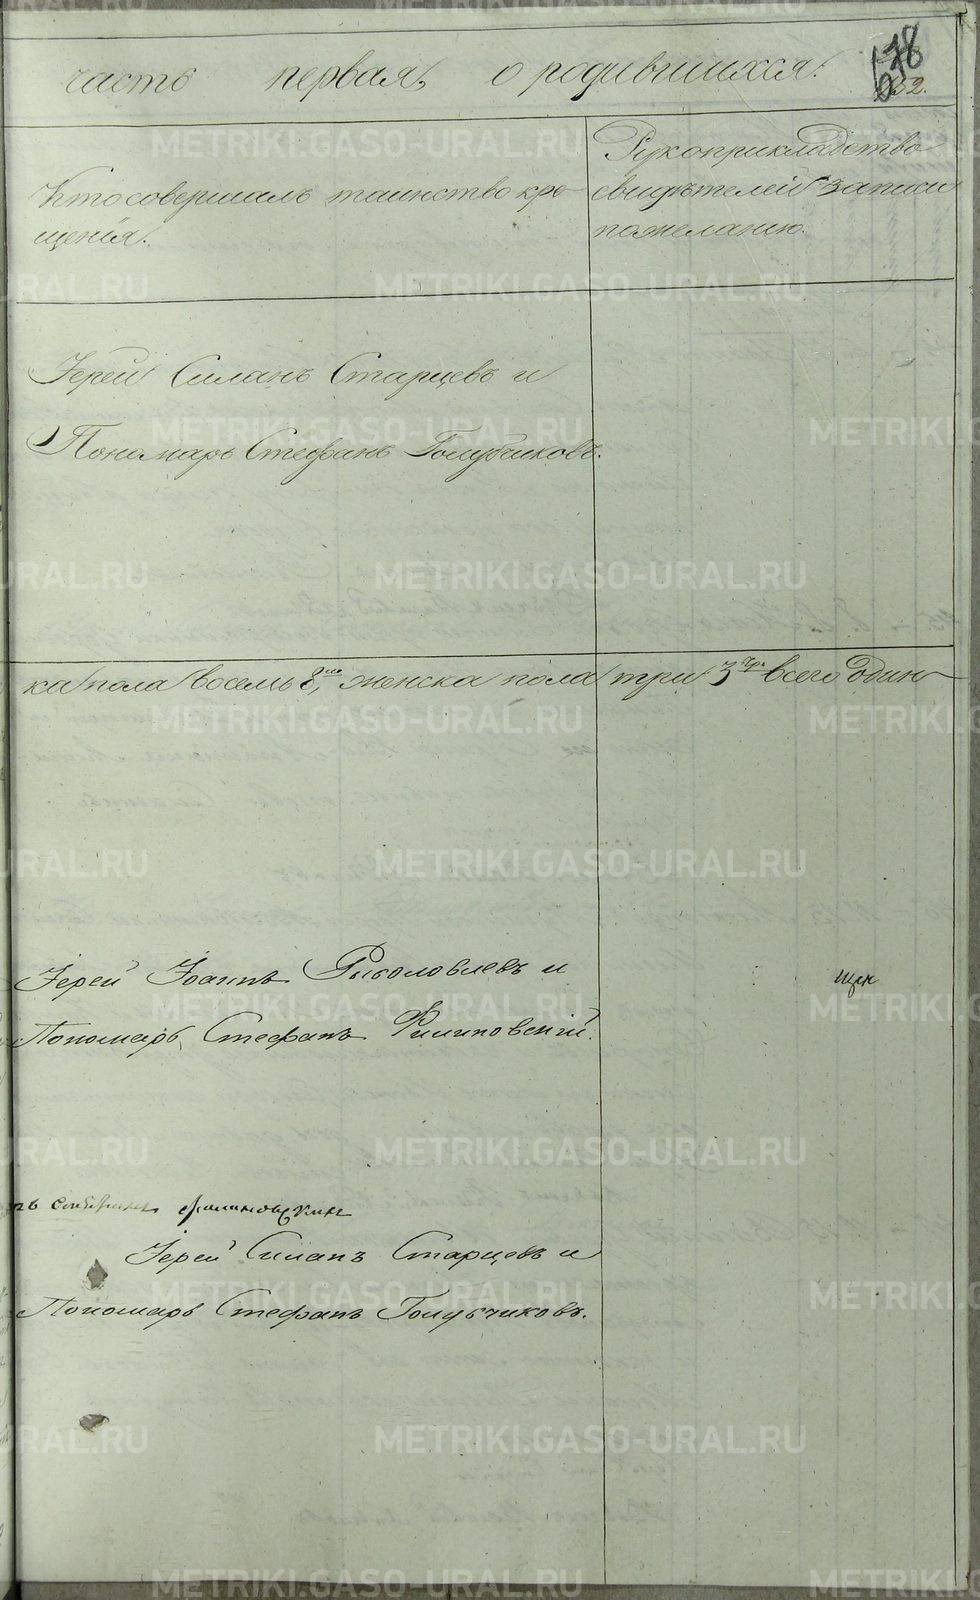 часть первая, о родившихся.
178
32.
Кто совершалъ таинство кре
щенія.
Рукоприкладство
свидѣтелей записи
по желанію.
Іерей Силанъ Старцевъ и
Пономарь Стефанъ Голубчиковъ.
ка пола восемь 8, женска пола три 3 всего один
Іерей Іоаннъ Рыболовлевъ и
Пономарь Стефанъ Филиповскій.
Іерей Силанъ Старцевъ и
Пономарь Стефанъ Голубчиковъ.
METRIKI.GASO-URAL.RU